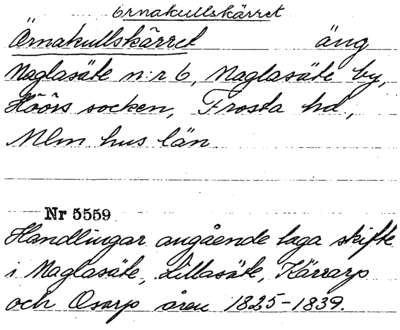 Örnakullskärret
Örnakullskärret äng
Maglasäte n:r 6, Maglasäte by,
Höörs socken, Frosta hd,
Mlm hus län
Nr 5559
Handlingar angående laga skifte
i Maglasäte, Lillasäte, Kärrarp
och Osarp åren 1825-1839.